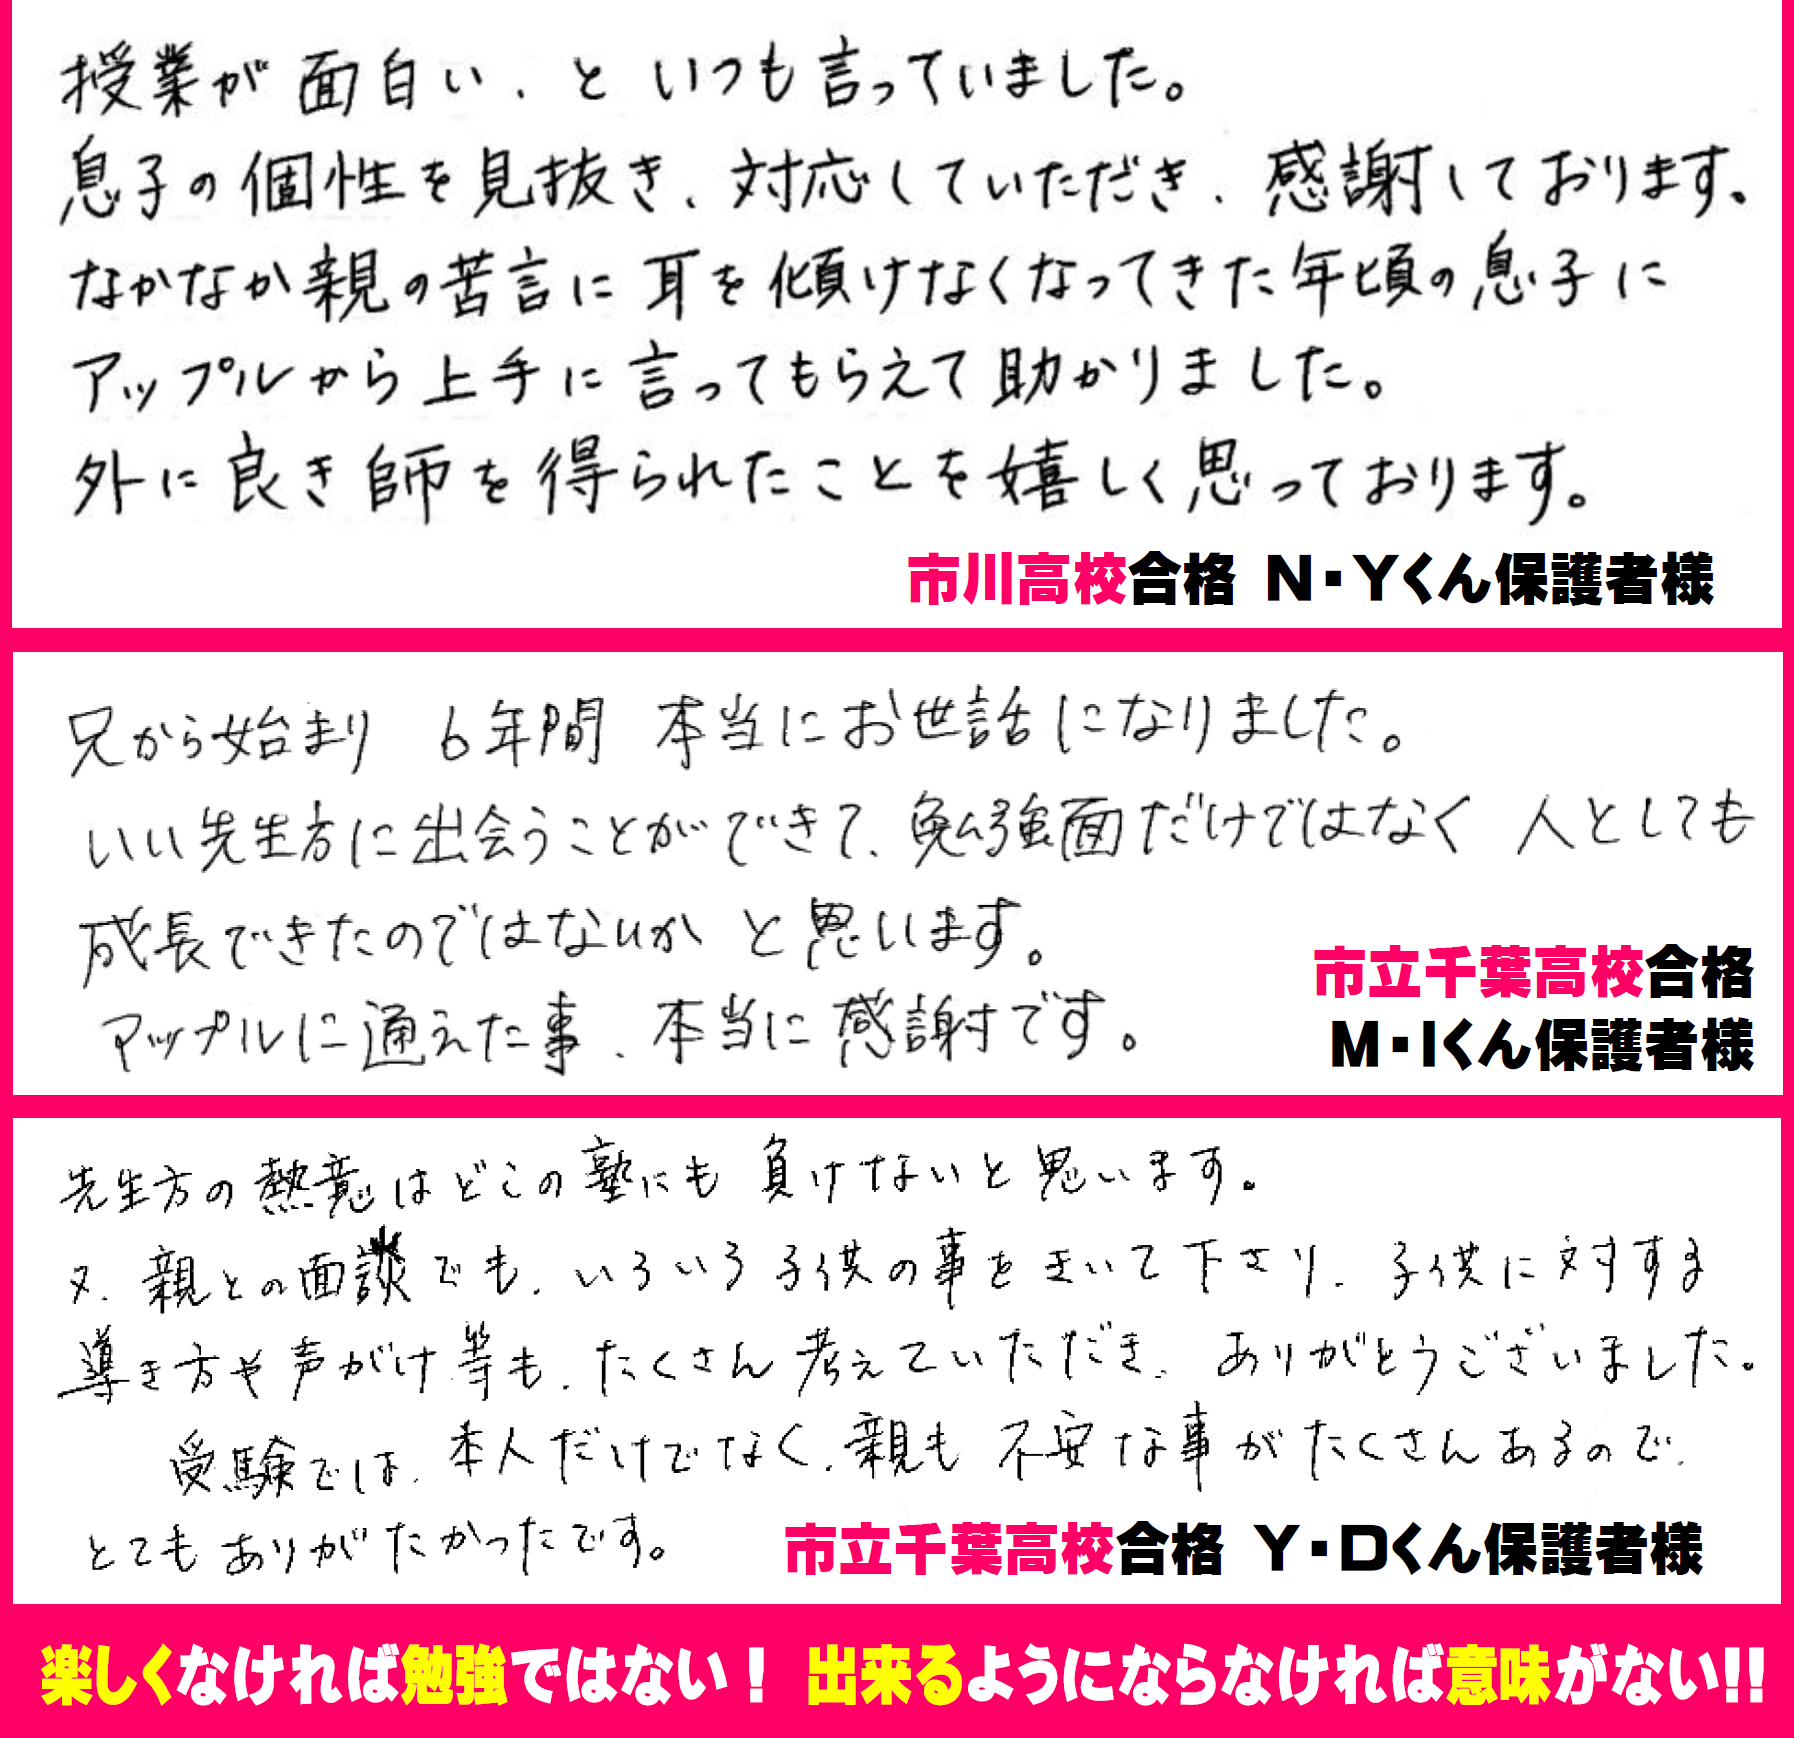 授業が面白い、といつも言っていました。
息子の個性を見抜き、対応していただき、感謝しております。
なかなか親の苦言に耳を傾けなくなってきた年頃の息子に
アップルから上手に言ってもらえて助かりました。
外に良き師を得られたことを嬉しく思っております。
市川高校合格 N・Yくん保護者様
兄から始まり 6年間 本当にお世話になりました。
いい先生方に出会うことができて、勉強面だけではなく 人としても
成長できたのではないかと思います。
アップルに通えた事、本当に感謝です。
市立千葉高校合格
M・Iくん保護者様
先生方の熱意はどこの塾にも負けないと思います。
又、親との面談でも、いろいろ子供の事をきいて下さり、子供に対する
導き方や声がけ等も、たくさん考えていただき、ありがとうございました。
受験では、本人だけでなく、親も不安な事がたくさんあるので、
とてもありがたかったです。
市立千葉高校合格 Y・Dくん保護者様
楽しくなければ勉強ではない！ 出来るようにならなければ意味がない!!